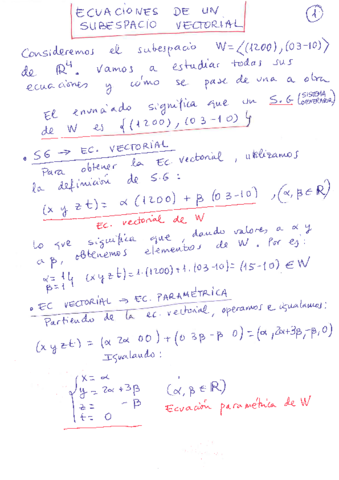 ECUACIONES DE UN
SUBESPACIO VECTORIAL
1
Consideremos el subespacio W=⟨(1200), (03-10)⟩
de ℝ⁴. Vamos a estudiar todas sus
ecuaciones y cómo se pasa de una a otra
El enunciado significa que un S.G (SISTEMA GENERADOR)
de W es {(1200), (03-10)}
• SG → EC. VECTORIAL
Para obtener la Ec vectorial, utilizamos
la definición de S.G:
(x y z t) = α (1200) + β (03-10) , (α, β ∈ ℝ)
Ec. vectorial de W
Lo que significa que, dando valores a α y
a β, obtenemos elementos de W. Por ej:
α=1
β=1 } (x y z t)=1·(1200)+1·(03-10)=(15-10) ∈ W
• EC VECTORIAL → EC. PARAMÉTRICA
Partiendo de la ec. vectorial, operamos e igualamos:
(x y z t) = (α 2α 0 0) + (0 3β -β 0) = (α, 2α+3β, -β, 0)
Igualando:
x = α
y = 2α + 3β
z = - β
t = 0
(α, β ∈ ℝ)
Ecuación paramétrica de W